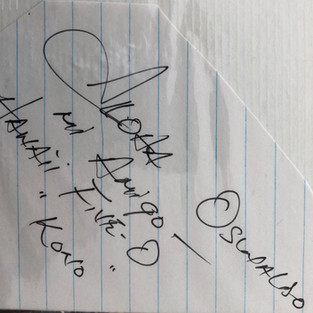 Osuvaldo
Aloha
mi Amigo!
Hawaii Five-O
" Kono "